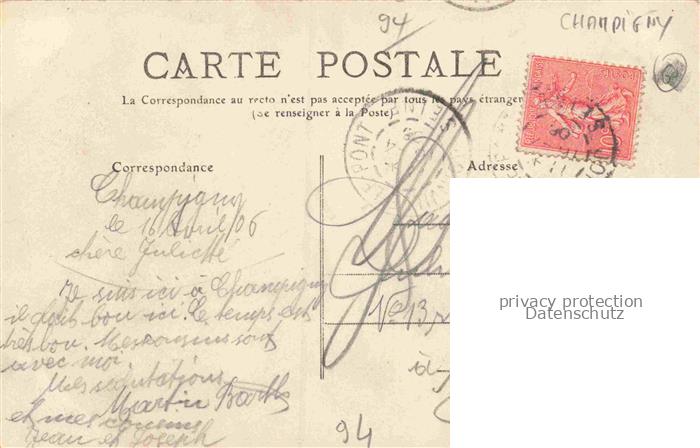 94
CHAMPIGNY
CARTE POSTALE
La Correspondance au recto n'est pas acceptée par tous les pays étranger
(Se renseigner à la Poste)
Correspondance
Adresse
Champigny
le 16 Avril/06
chère Juliette
Je suis ici à Champigny
il fait bon ici. Le temps est
très bon. Mes cousins sont
avec moi.
Mes salutations
Martin Barth
et mes cousins
Jean et Joseph
No 13
à
94
PONT
privacy protection
Datenschutz